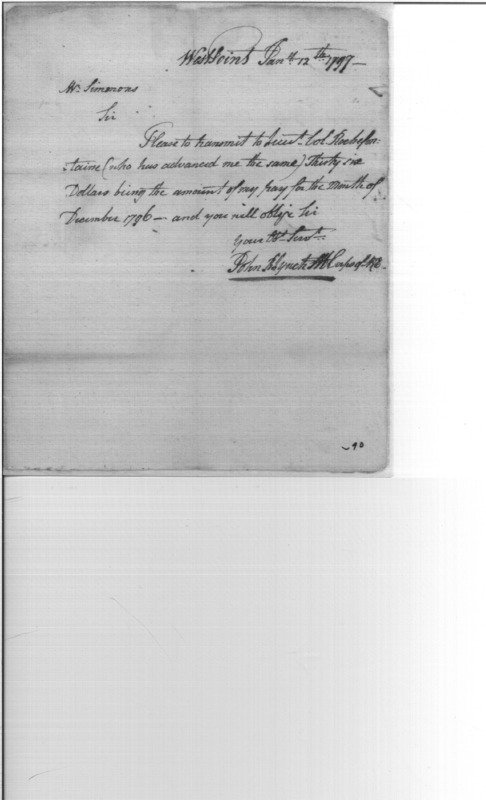 West Point Jany 12th 1797—
Mr Simmons
Sir
Please to transmit to Lieut. Col Rochefon-
-taine (who has advanced me the same) Thirty six
Dollars being the amount of my pay for the month of
December 1796— and you will oblige Sir
your Obt Servt.
John Lynch Corps of
90